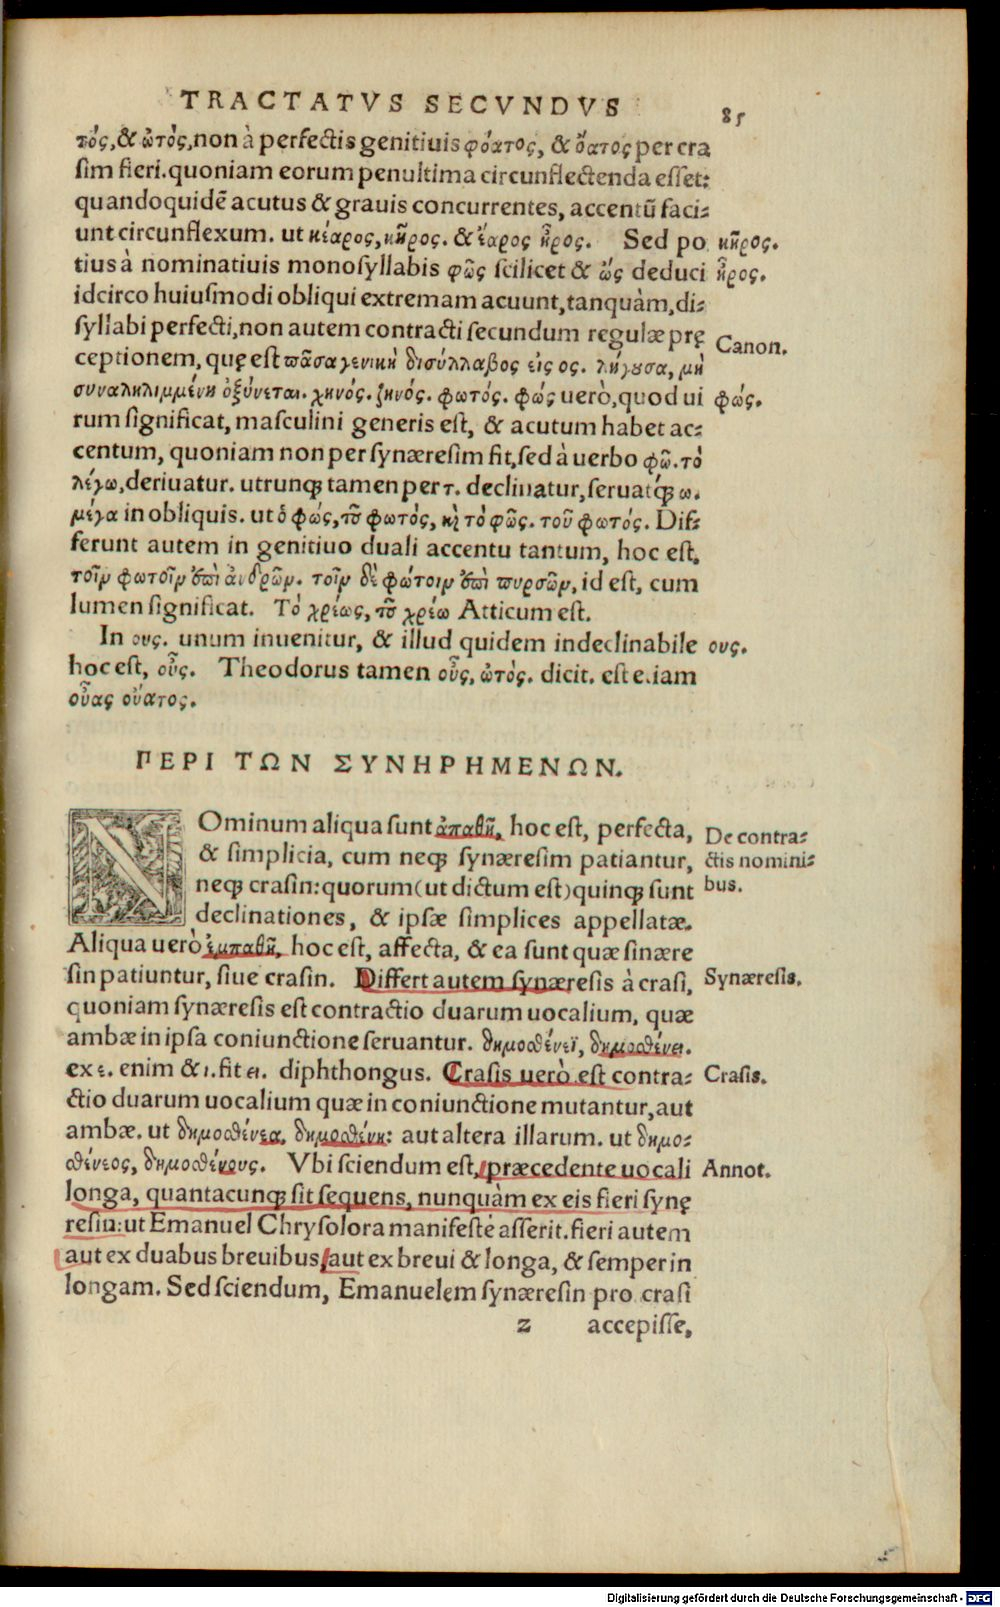 TRACTATVS SECVNDVS 85
τός, & ὠτός, non à perfectis genitiuis φόατος, & ὄατος per cra
sim fieri. quoniam eorum penultima circunflectenda esset:
quandoquidē acutus & grauis concurrentes, accentū faci-
unt circunflexum. ut κέαρος, κῆρος. & ἔαρος ἦρος. Sed po κῆρος.
tius à nominatiuis monosyllabis φῶς scilicet & ὦς deduci ἦρος.
idcirco huiusmodi obliqui extremam acuunt, tanquàm, di-
syllabi perfecti, non autem contracti secundum regulæ prę
ceptionem, quę est πᾶσα γενικὴ δισύλλαβος εἰς ος. λήγουσα, μὴ Canon.
συναληλιμμένη ὀξύνεται. χηνός. ζηνός. φωτός. φώς uerò, quod ui φώς.
rum significat, masculini generis est, & acutum habet ac-
centum, quoniam non per synæresim fit, sed à uerbo φῶ. τὸ
λέγω, deriuatur. utrunq; tamen per τ. declinatur, seruatq́; ω.
μέγα in obliquis. ut ὁ φώς, τοῦ φωτός, καὶ τὸ φῶς. τοῦ φωτός. Dif-
ferunt autem in genitiuo duali accentu tantum, hoc est.
τοῖν φωτοῖν ἐπὶ ἀνδρῶν. τοῖν δὲ φώτοιν ἐπὶ πυρσῶν, id est, cum
lumen significat. Τὸ χρέως, τοῦ χρέω Atticum est.
In ους. unum inuenitur, & illud quidem indeclinabile ους.
hoc est, οὖς. Theodorus tamen οὖς, ὠτὸς. dicit. est etiam
οὖας οὔατος.
ΠΕΡΙ ΤΩΝ ΣΥΝΗΡΗΜΕΝΩΝ.
NOminum aliqua sunt ἀπαθῆ, hoc est, perfecta, De contra-
& simplicia, cum neq; synæresim patiantur, ctis nomini-
neq; crasin: quorum (ut dictum est) quinq; sunt bus.
declinationes, & ipsæ simplices appellatæ.
Aliqua uerò ἐμπαθῆ, hoc est, affecta, & ea sunt quæ sinære
sin patiuntur, siue crasin. Differt autem synæresis à crasi, Synæresis.
quoniam synæresis est contractio duarum uocalium, quæ
ambæ in ipsa coniunctione seruantur. δημοσθένεϊ, δημοσθένει.
ex ε. enim & ι. fit ει. diphthongus. Crasis uerò est contra- Crasis.
ctio duarum uocalium quæ in coniunctione mutantur, aut
ambæ. ut δημοσθένεα, δημοσθένη: aut altera illarum. ut δημο-
σθένεος, δημοσθένους. Vbi sciendum est, præcedente uocali Annot.
longa, quantacunq; sit sequens, nunquàm ex eis fieri synę
resin: ut Emanuel Chrysolora manifestè asserit. fieri autem
aut ex duabus breuibus, aut ex breui & longa, & semper in
longam. Sed sciendum, Emanuelem synæresin pro crasi
z accepisse,
Digitalisierung gefördert durch die Deutsche Forschungsgemeinschaft - DFG